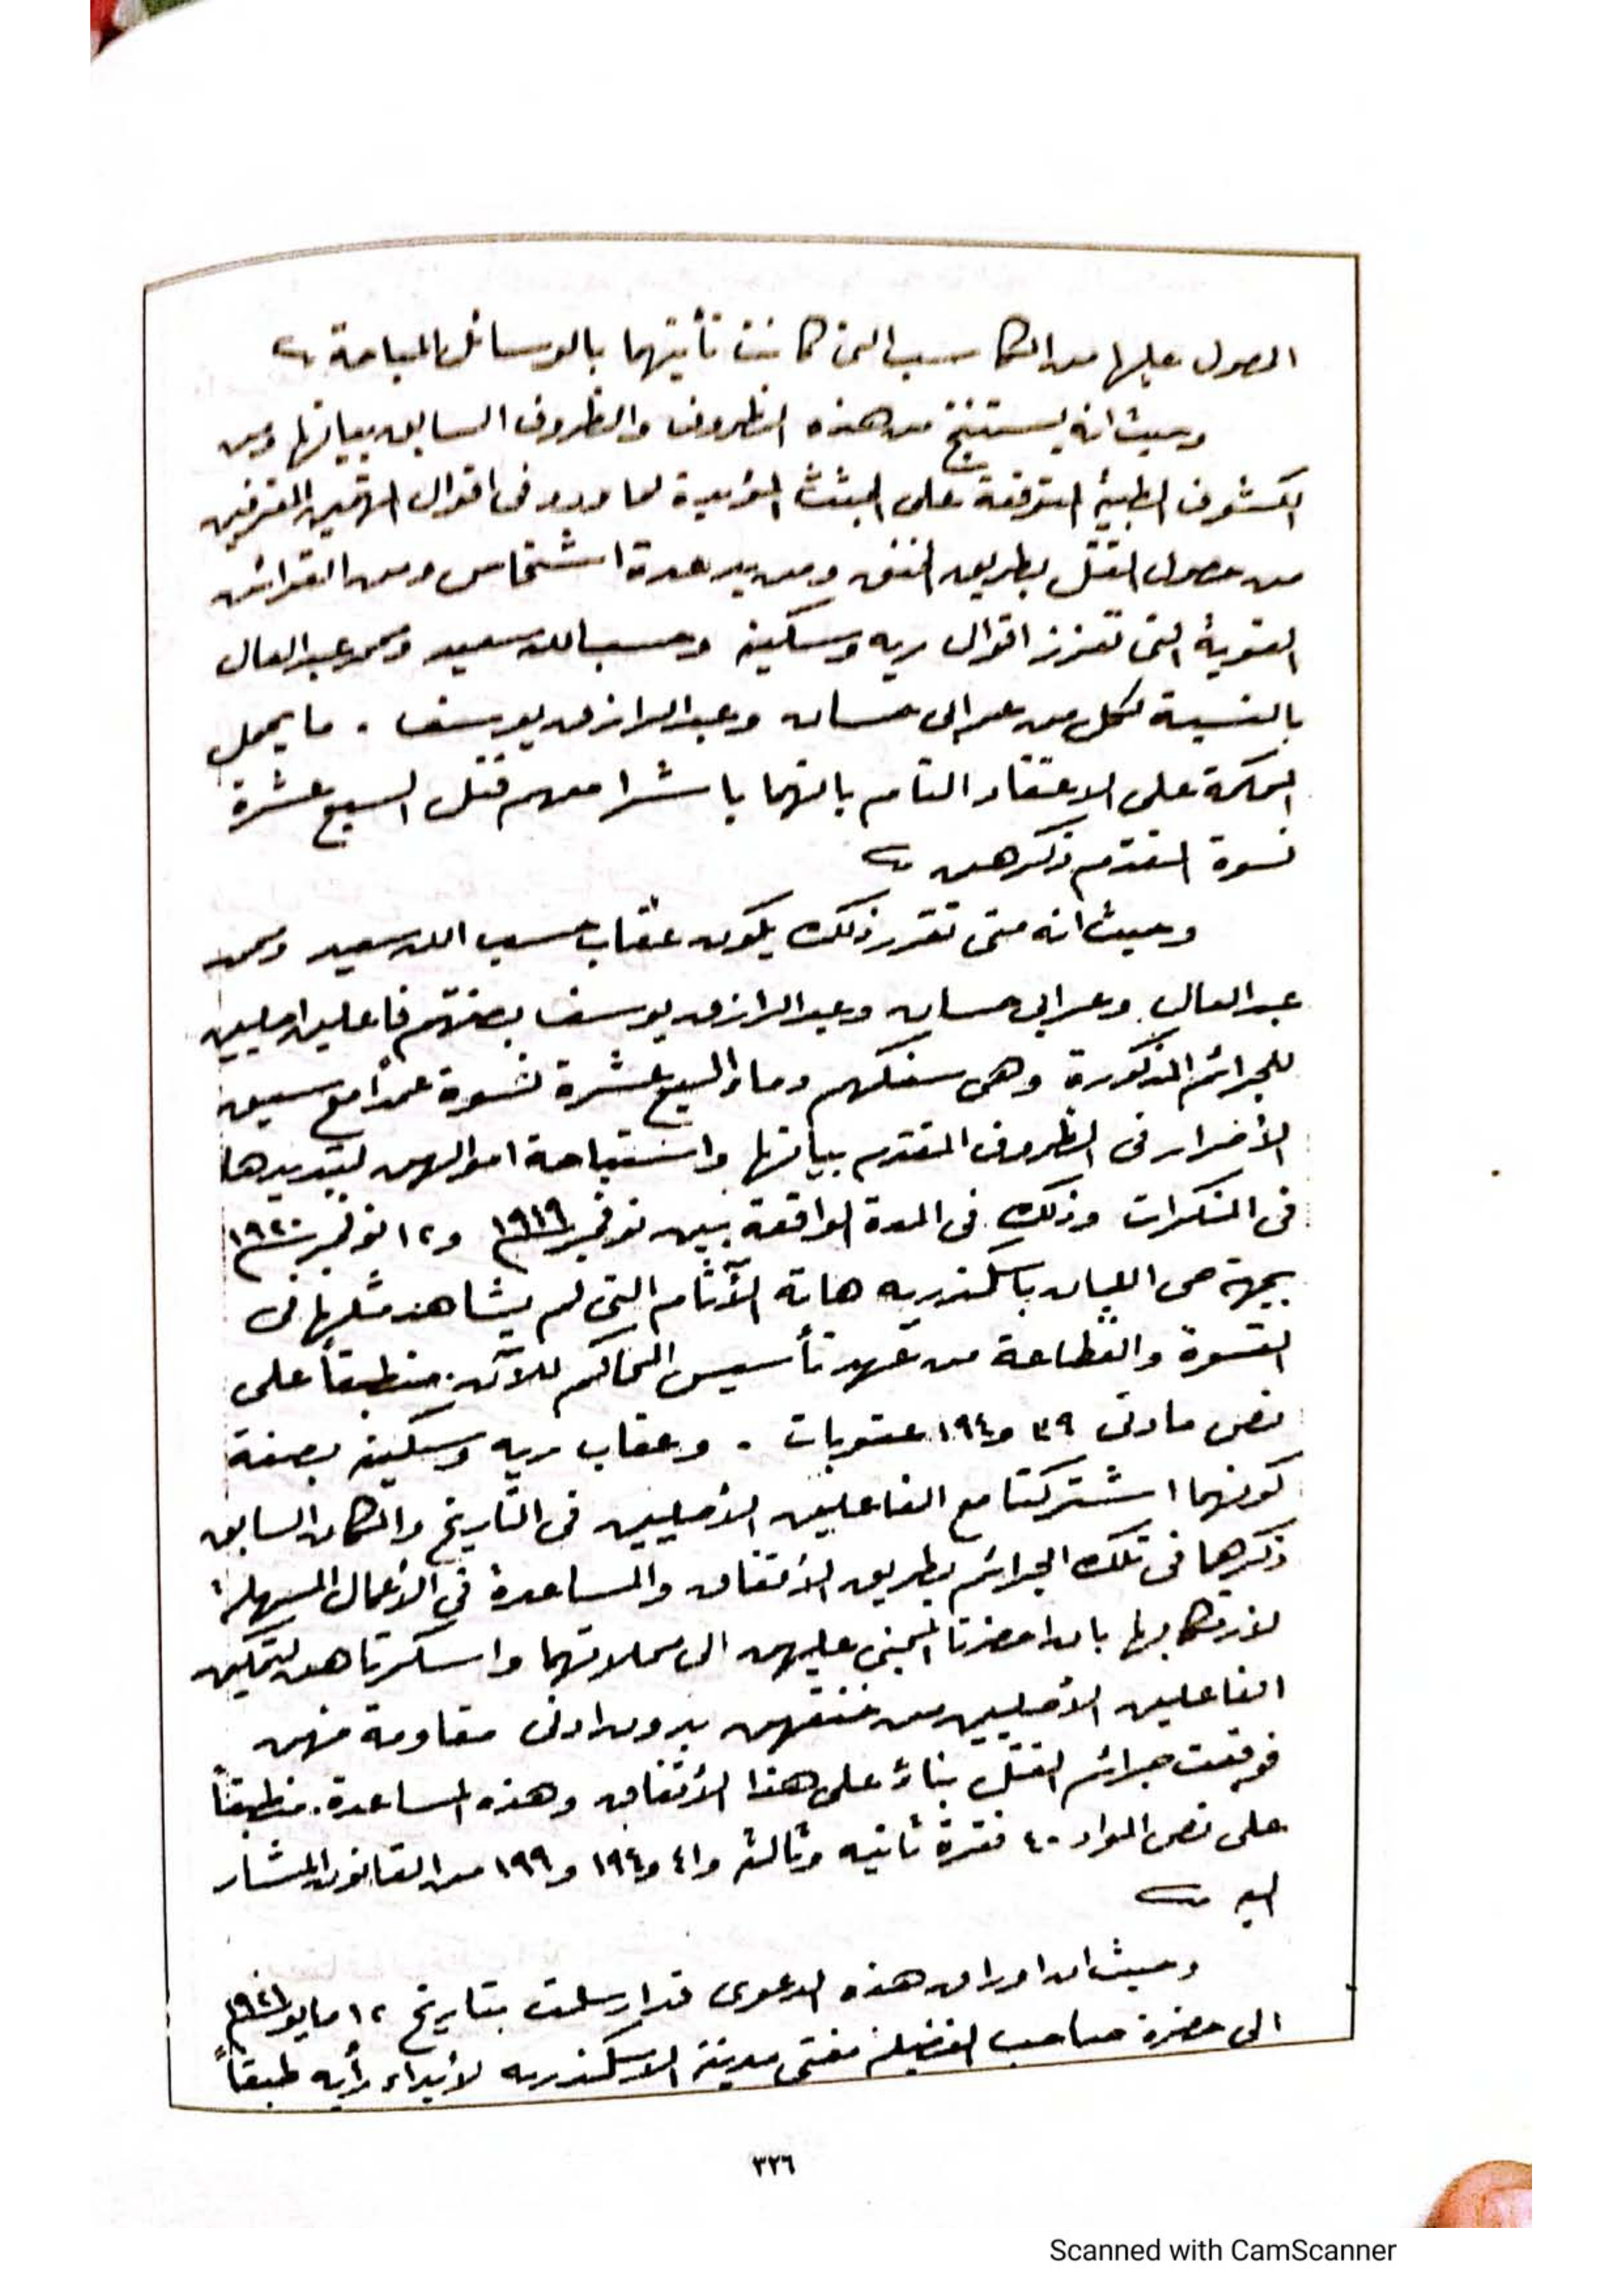 الحصول عليها من المكاسب التى كانت تأتيهما بالوسائل المباحة
وحيث انه يستنتج من هذه الظروف والظروف السابق بيانها ومن
الكشوف الطبية المتوقعة على الجثث المؤيدة لما ورد فى اقوال المتهمين المعترفين
من حصول القتل بطريق الخنق ومن يد عدة اشخاص ومن القرائن
القوية التى تعزز اقوال ريه وسكينه وحسب الله سعيد ومحمد عبد العال
بالنسبة لكل من عرابى حسان وعبد الرازق يوسف . ما يحمل
المحكمة على الاعتقاد التام بانهما باشرا معهم قتل السبع عشرة
نسوة المتقدم ذكرهن
وحيث انه متى تقرر ذلك يكون عقاب حسب الله سعيد ومحمد
عبد العال وعرابى حسان وعبد الرازق يوسف بصفتهم فاعلين اصليين
للجرائم المذكورة وهى سفكهم دماء السبع عشرة نسوة عمداً مع سبق
الأصرار فى الظروف المتقدم بيانها واستباحة اموالهن لتبديدها
فى المنكرات وذلك فى المدة الواقعة بين نوفمبر ١٩١٩ و١٢ نوفمبر ١٩٢٠
بجهة حى اللبان باسكندريه هاته الآثام التى لم يشاهد مثلها فى
القسوة والفظاعة من عهد تأسيس المحاكم للآن . منطبقاً على
نص مادتى ٣٩ و١٩٤ عقوبات . وعقاب ريه وسكينه بصفة
كونهما اشتركتا مع الفاعلين الأصليين فى التاريخ والمكان السابق
ذكرهما فى تلك الجرائم بطريق الأتفاق والمساعدة فى الأعمال المسهلة
لارتكابها بان احضرتا المجنى عليهن الى محلاتهما واسكرتاهن لتمكين
الفاعلين الأصليين من خنقهن بدون ادنى مقاومة منهن
فوقعت جرائم القتل بناءً على هذا الأتفاق وهذه المساعدة . منطبقاً
على نص المواد ٤٠ فقرة ثانيه وثالثه و٤١ و١٩٤ و١٩٩ من القانون المشار
اليه
وحيث ان اوراق هذه الدعوى قد ارسلت بتاريخ ١٢ مايو ١٩٢١
الى حضرة صاحب الفضيلة مفتى مدينة الاسكندريه لأبداء رأيه طبقاً
٣٢٦
Scanned with CamScanner